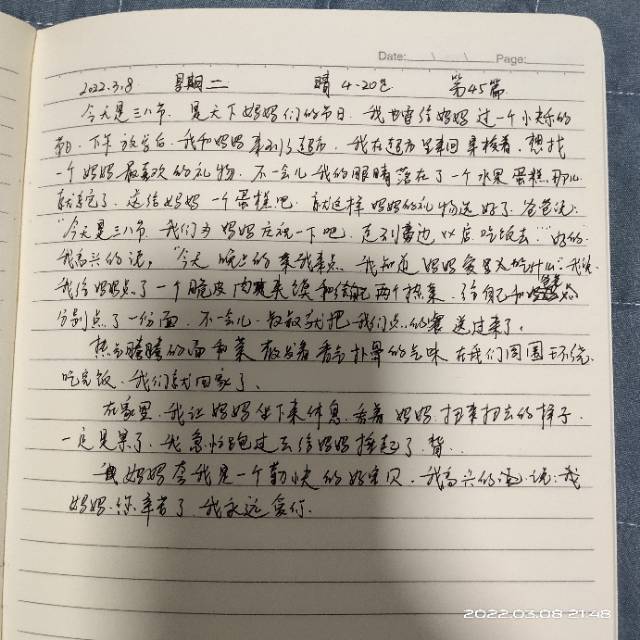 Date: \ \ Page:
2022.3.8 星期二 晴 4-20℃ 第45篇
今天是三八节,是天下妈妈们的节日,我也要给妈妈过一个快乐的
节日,下午放学后,我和妈妈来到了超市,我在超市里来回寻梭着,想找
一个妈妈最喜欢的礼物,不一会儿我的眼睛落在了一个水果蛋糕那儿
就送给妈妈一个蛋糕吧,就这样妈妈的礼物选好了,爸爸说:
“今天是三八节,我们为妈妈庆祝一下吧,吃饭去”“好的.
我高兴的说,“今天晚上的菜我来点,我知道妈妈爱吃什么”我
我给妈妈点了一个脆皮和两个热菜,给自己和
分别点了一份面,不一会儿,叔叔就把我们点的送过来了,
热气腾腾的面和菜散发着香气扑鼻的气味,在我们周围环绕.
吃完饭,我们就回家了,
在家里,我让妈妈坐下来休息,看着妈妈扭来扭去的样子,
一定是累了,我急忙跑过去给妈妈捶起了背..
妈妈夸我是一个勤快的好宝贝,我高兴的说:
妈妈,你辛苦了,我永远爱你.
2022.03.08 21:48